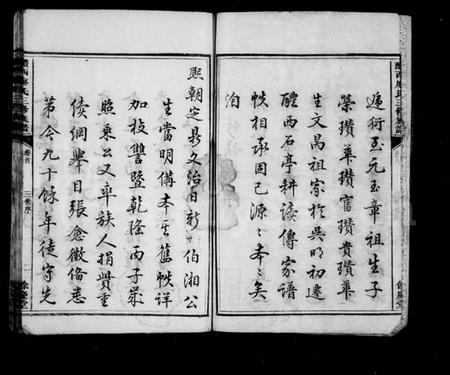 遞衍至元玉章祖生子
榮瓚華瓚富瓚貴瓚華
生文昌祖家於吳明初遷
醴西石亭耕讀傳家譜
帙相承固已源源本本矣
泊
熙朝定鼎文治日新 伯湘公
生當明備本生舊帙詳
加校讐暨乾隆丙子歲
照乘公又率族人捐貲重
續綱舉目張愈徵備悉
第今九十餘年徒守先
卷首
三修序